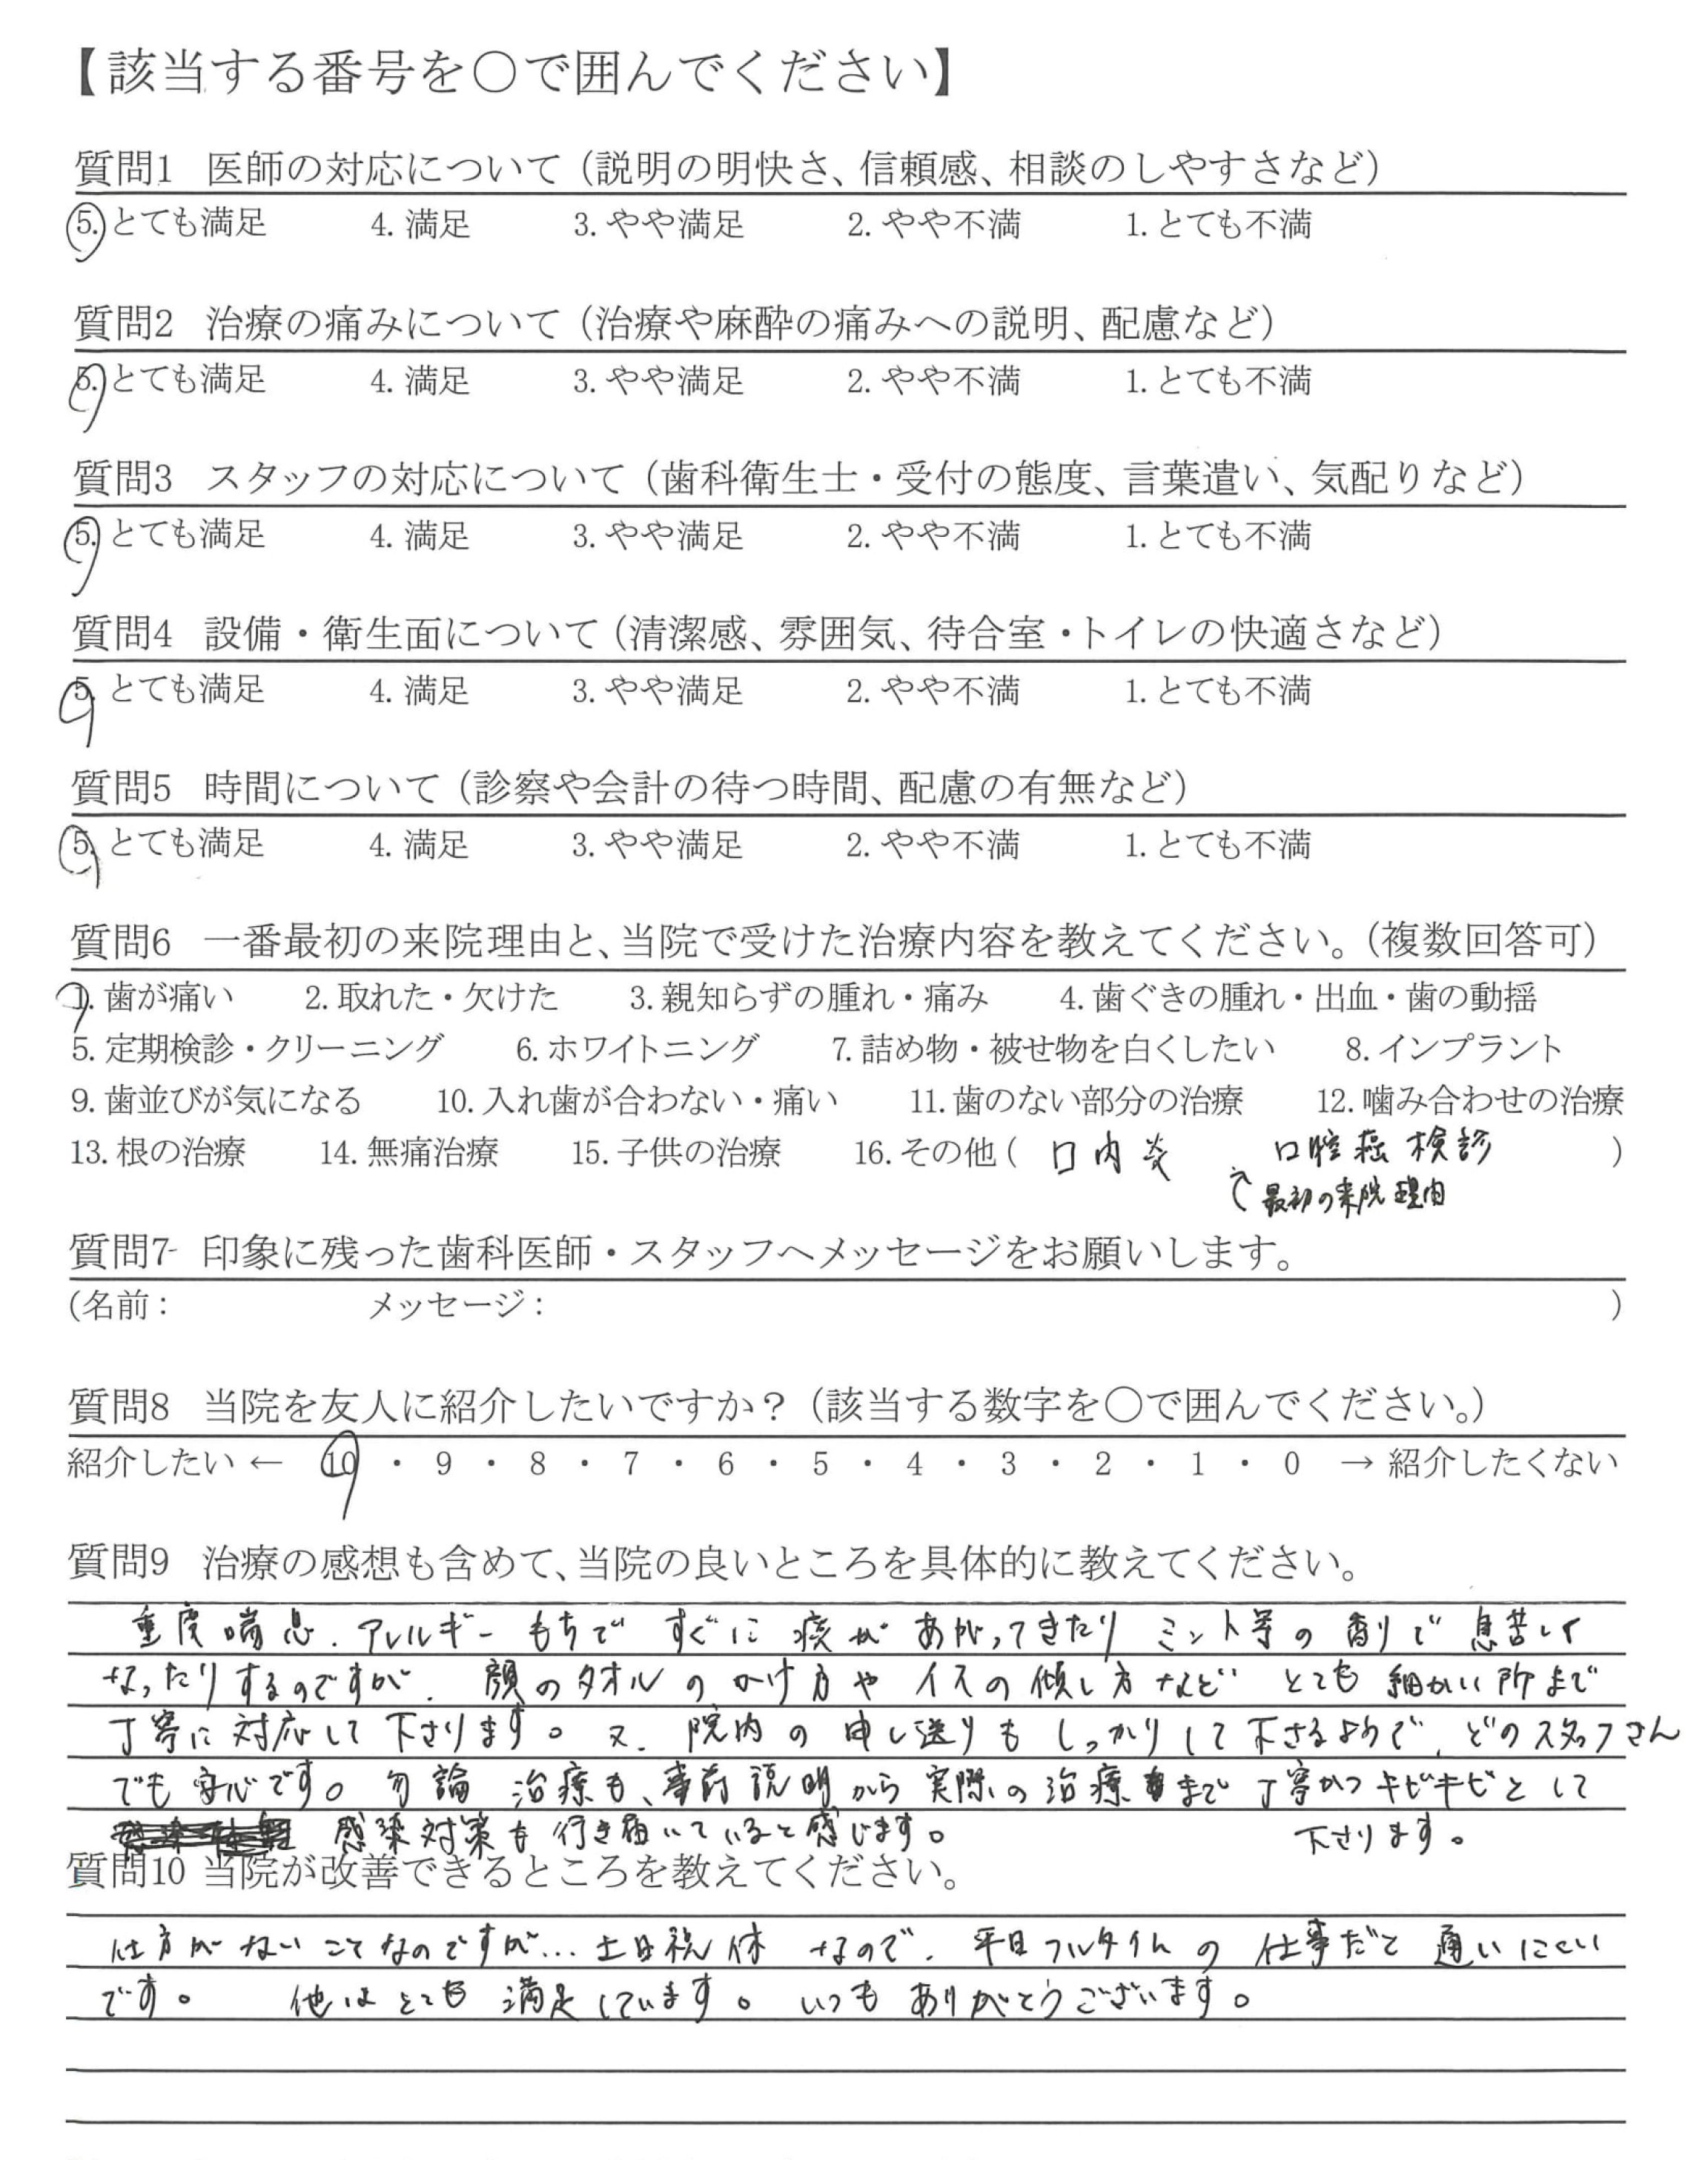 【該当する番号を〇で囲んでください】
質問1 医師の対応について（説明の明快さ、信頼感、相談のしやすさなど）
5. とても満足 4. 満足 3. やや満足 2. やや不満 1. とても不満
質問2 治療の痛みについて（治療や麻酔の痛みへの説明、配慮など）
5. とても満足 4. 満足 3. やや満足 2. やや不満 1. とても不満
質問3 スタッフの対応について（歯科衛生士・受付の態度、言葉遣い、気配りなど）
5. とても満足 4. 満足 3. やや満足 2. やや不満 1. とても不満
質問4 設備・衛生面について（清潔感、雰囲気、待合室・トイレの快適さなど）
5. とても満足 4. 満足 3. やや満足 2. やや不満 1. とても不満
質問5 時間について（診察や会計の待つ時間、配慮の有無など）
5. とても満足 4. 満足 3. やや満足 2. やや不満 1. とても不満
質問6 一番最初の来院理由と、当院で受けた治療内容を教えてください。（複数回答可）
1. 歯が痛い 2. 取れた・欠けた 3. 親知らずの腫れ・痛み 4. 歯ぐきの腫れ・出血・歯の動揺
5. 定期検診・クリーニング 6. ホワイトニング 7. 詰め物・被せ物を白くしたい 8. インプラント
9. 歯並びが気になる 10. 入れ歯が合わない・痛い 11. 歯のない部分の治療 12. 噛み合わせの治療
13. 根の治療 14. 無痛治療 15. 子供の治療 16. その他（ 口内炎 口腔癌検診 ）
最初の来院理由
質問7 印象に残った歯科医師・スタッフへメッセージをお願いします。
（名前： メッセージ： ）
質問8 当院を友人に紹介したいですか？（該当する数字を〇で囲んでください。）
紹介したい ← 10 ・ 9 ・ 8 ・ 7 ・ 6 ・ 5 ・ 4 ・ 3 ・ 2 ・ 1 ・ 0 → 紹介したくない
質問9 治療の感想も含めて、当院の良いところを具体的に教えてください。
重度喘息、アレルギーもちで すぐに痰があがってきたり ミント等の香りで息苦しく
なったりするのですが、顔のタオルのかけ方や イスの傾し方など とても細かい所まで
丁寧に対応して下さります。又、院内の申し送りもしっかりして下さるようで、どのスタッフさん
でも安心です。勿論 治療も、事前説明から実際の治療まで 丁寧かつキビキビとして
下さります。
感染対策も行き届いていると感じます。
質問10 当院が改善できるところを教えてください。
仕方がないことなのですが…土日祝休なので、平日フルタイムの仕事だと通いにくい
です。 他はとても満足しています。いつもありがとうございます。